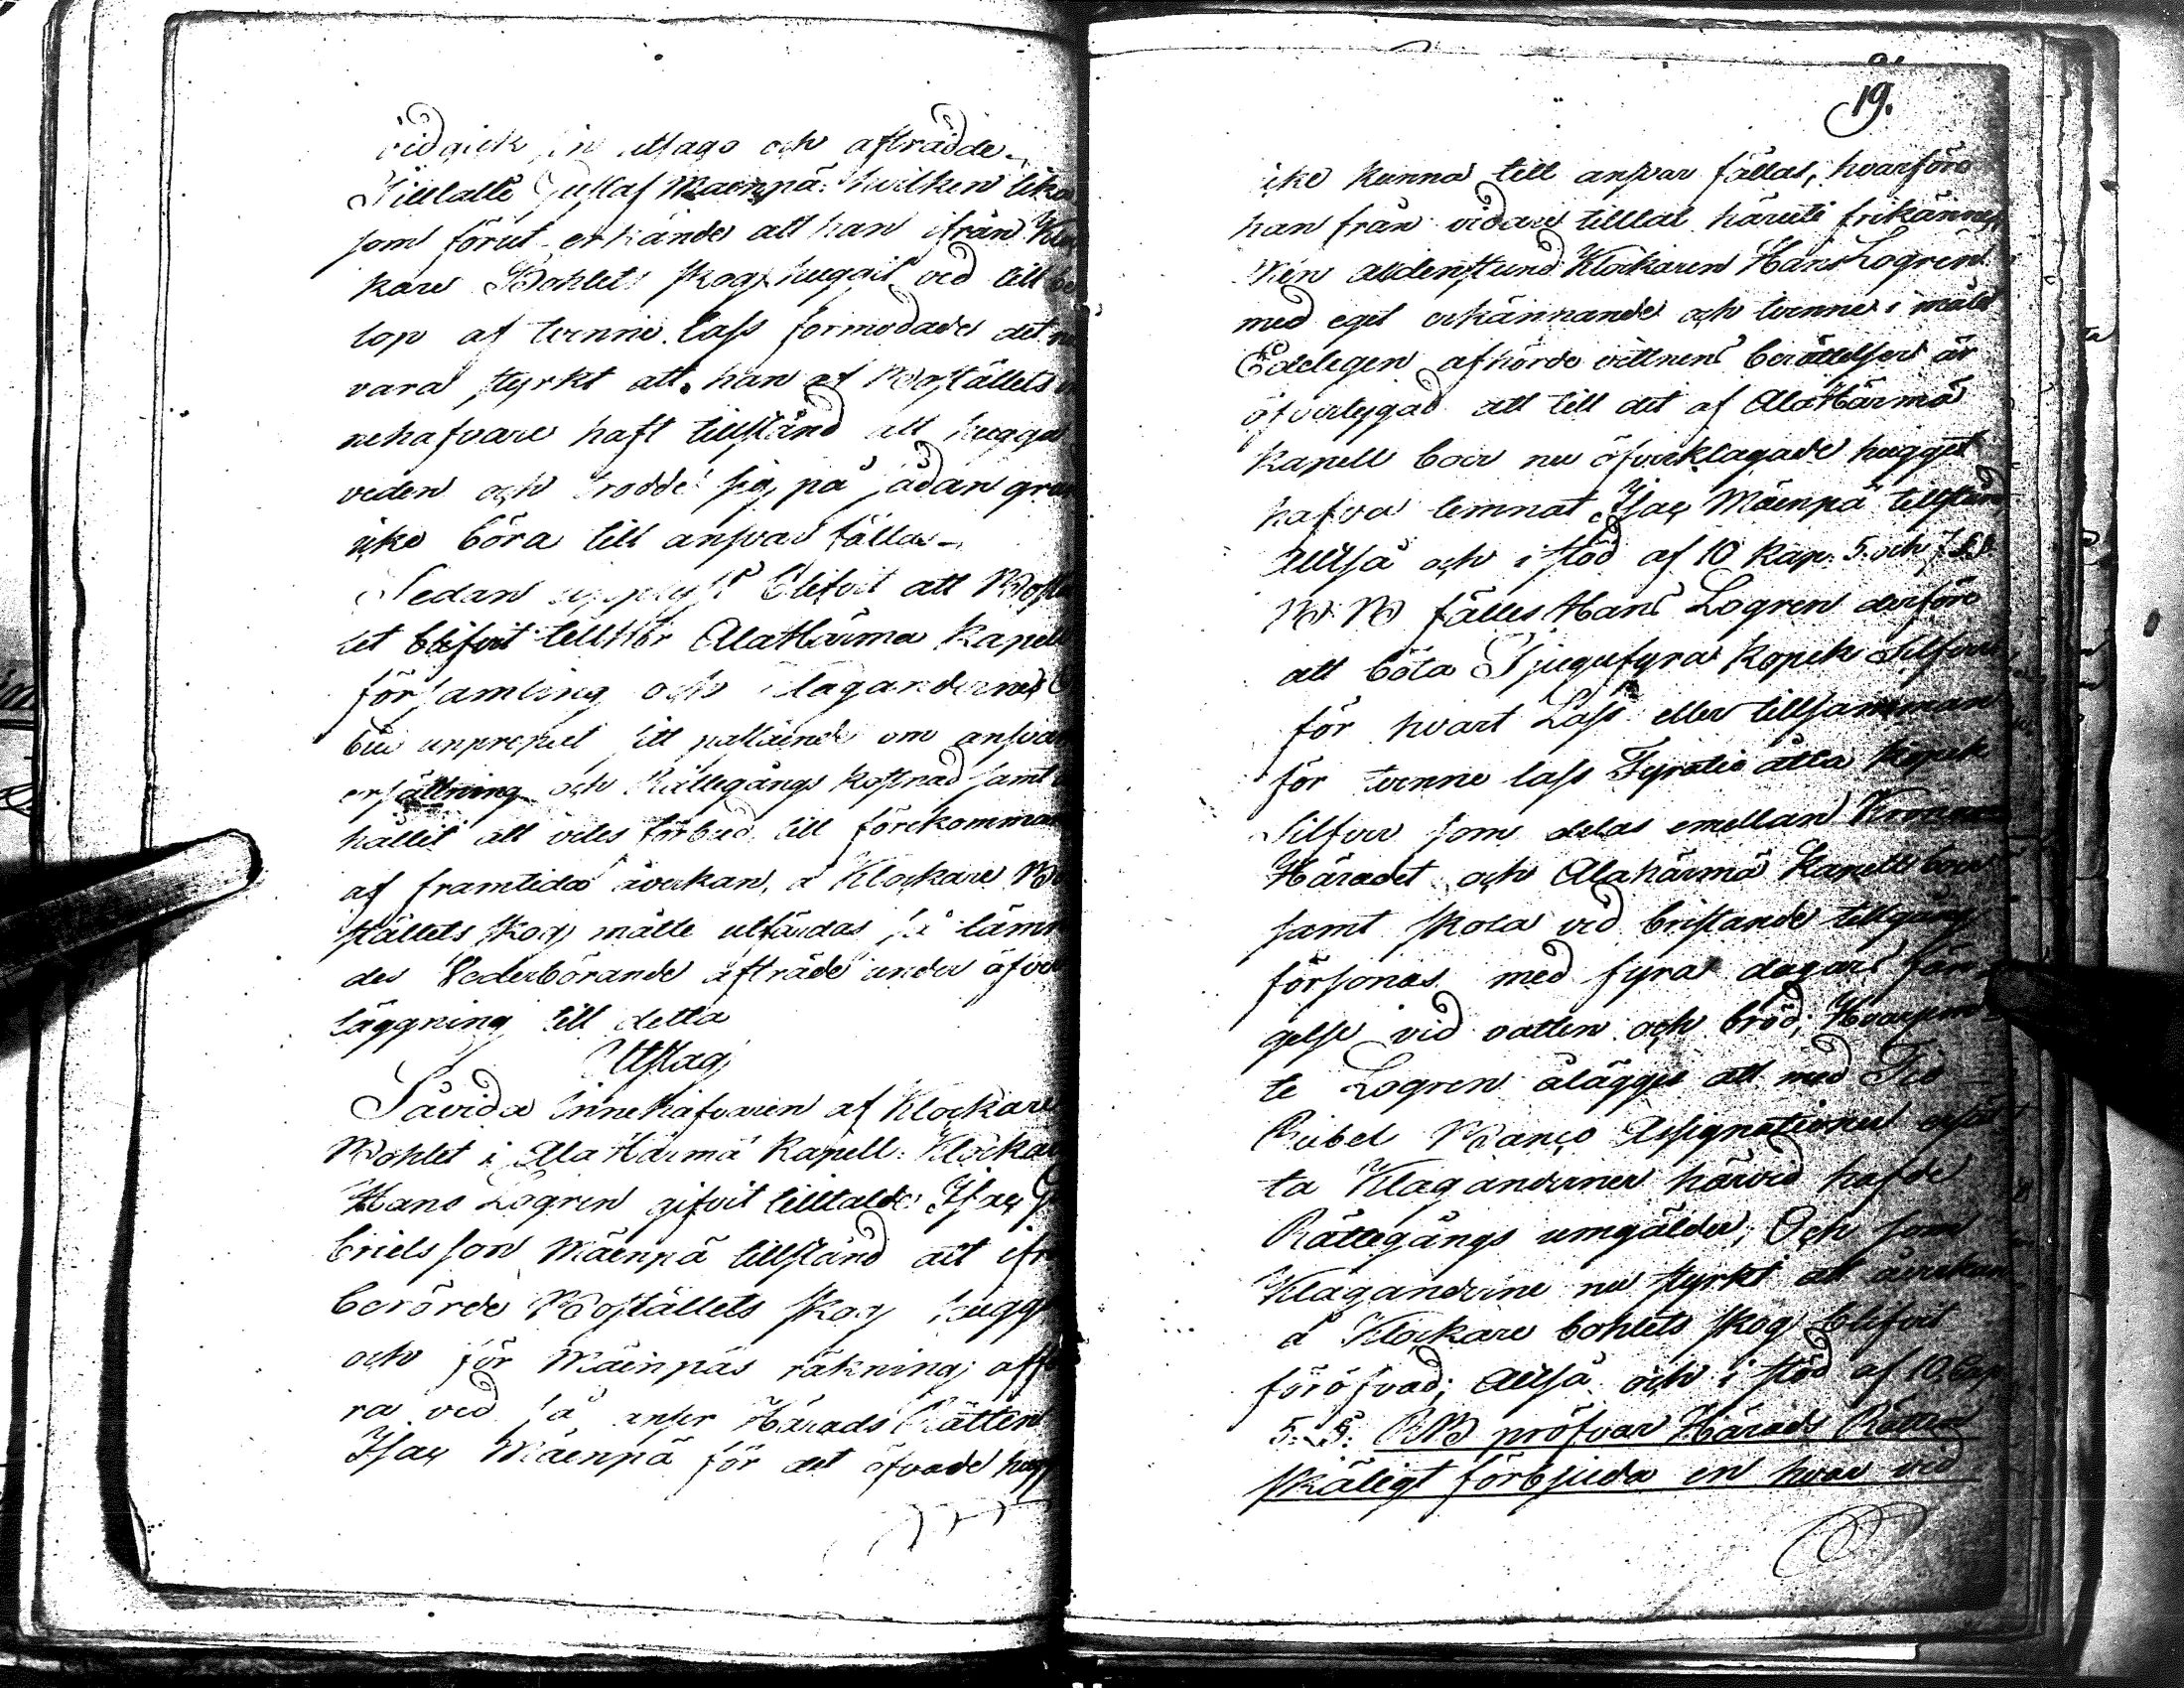 vidgick sin utsago och afträdde.
Tilltalte Gustaf Mäenpä hvilken lika
som förut erkände att han ifrån Kloc
kare Bohlets skog huggit ved till be
lop af tvenne lass förmodade det nu
vara styrkt att han af Boställets in
nehafvare haft tillstånd att hugga
veden och trodde sig på sådan grund
icke böra till ansvar fällas.
Sedan upplyst blifvit att Bostäl
let blifvit tillhör Alahärmä Kapell
församling och Kläganderne
blir uprepat sitt påstående om ansvar
ersättning och Rättegångs kostnad samt
hållit att vites förbud till förekommande
af framtida åverkan, å Klockare Bo
ställets skog måtte utfärdas så läm
des Vederbörande afträde under öfver
läggning till detta
Utslag
Såvida innehafvaren af Klockare
Bohlet i Alahärmä Kapell Klockaren
Hans Logren gifvit tilltalde Isac Ga
brielsson Mäenpä tillstånd att ifrån
berörde Boställets skog hugga
och för Mäenpäs räkning affö
ra ved så anser Härads Rätten
Isac Mäenpä för det öfvade hugg
19.
icke kunna till ansvar fällas, hvarföre
han från vidare tilltal häruti frikännes
Men aldenstund Klockaren Hans Logren
med eget erkännande och tvenne i målet
Edeligen afhörde vittnens berättelser är
öfvertygad att till det af Alahärmä
Kapell boer nu öfverklagade hugget
hafva lemnat Isac Mäenpä tillstånd
Alltså och i stöd af 10 Kap. 5. och 7 §§
B. B fälles Hans Logren derföre
att böta Tjugufyra Kopek Silfver
för hvart Lass eller tillsamman
för tvenne lass Fyratio åtta kopek
Silfver som delas emellan Kronan
Häradet och Alahärmä Kapell boer
samt skola vid bristande tillgång
försonas med fyra dagars fän
gelse vid vatten och bröd; Hvarjem
te Logren ålägges att med Tio
Rubel Banco Assignationer ersät
ta Kläganderne härvid hafde
Rättegångs umgälder; Och som
Kläganderne nu styrkt att åverkan
å Klockare bohlets skog blifvit
föröfvad; Alltså och i stöd af 10 Cap
5. §. B.B pröfvar Härads Rätten
skäligt förbjuda en hvar vid